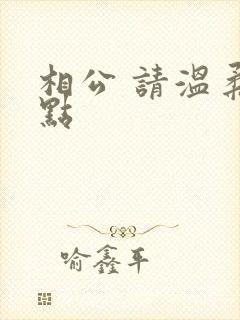 相公 請溫柔
點
喻鑫平